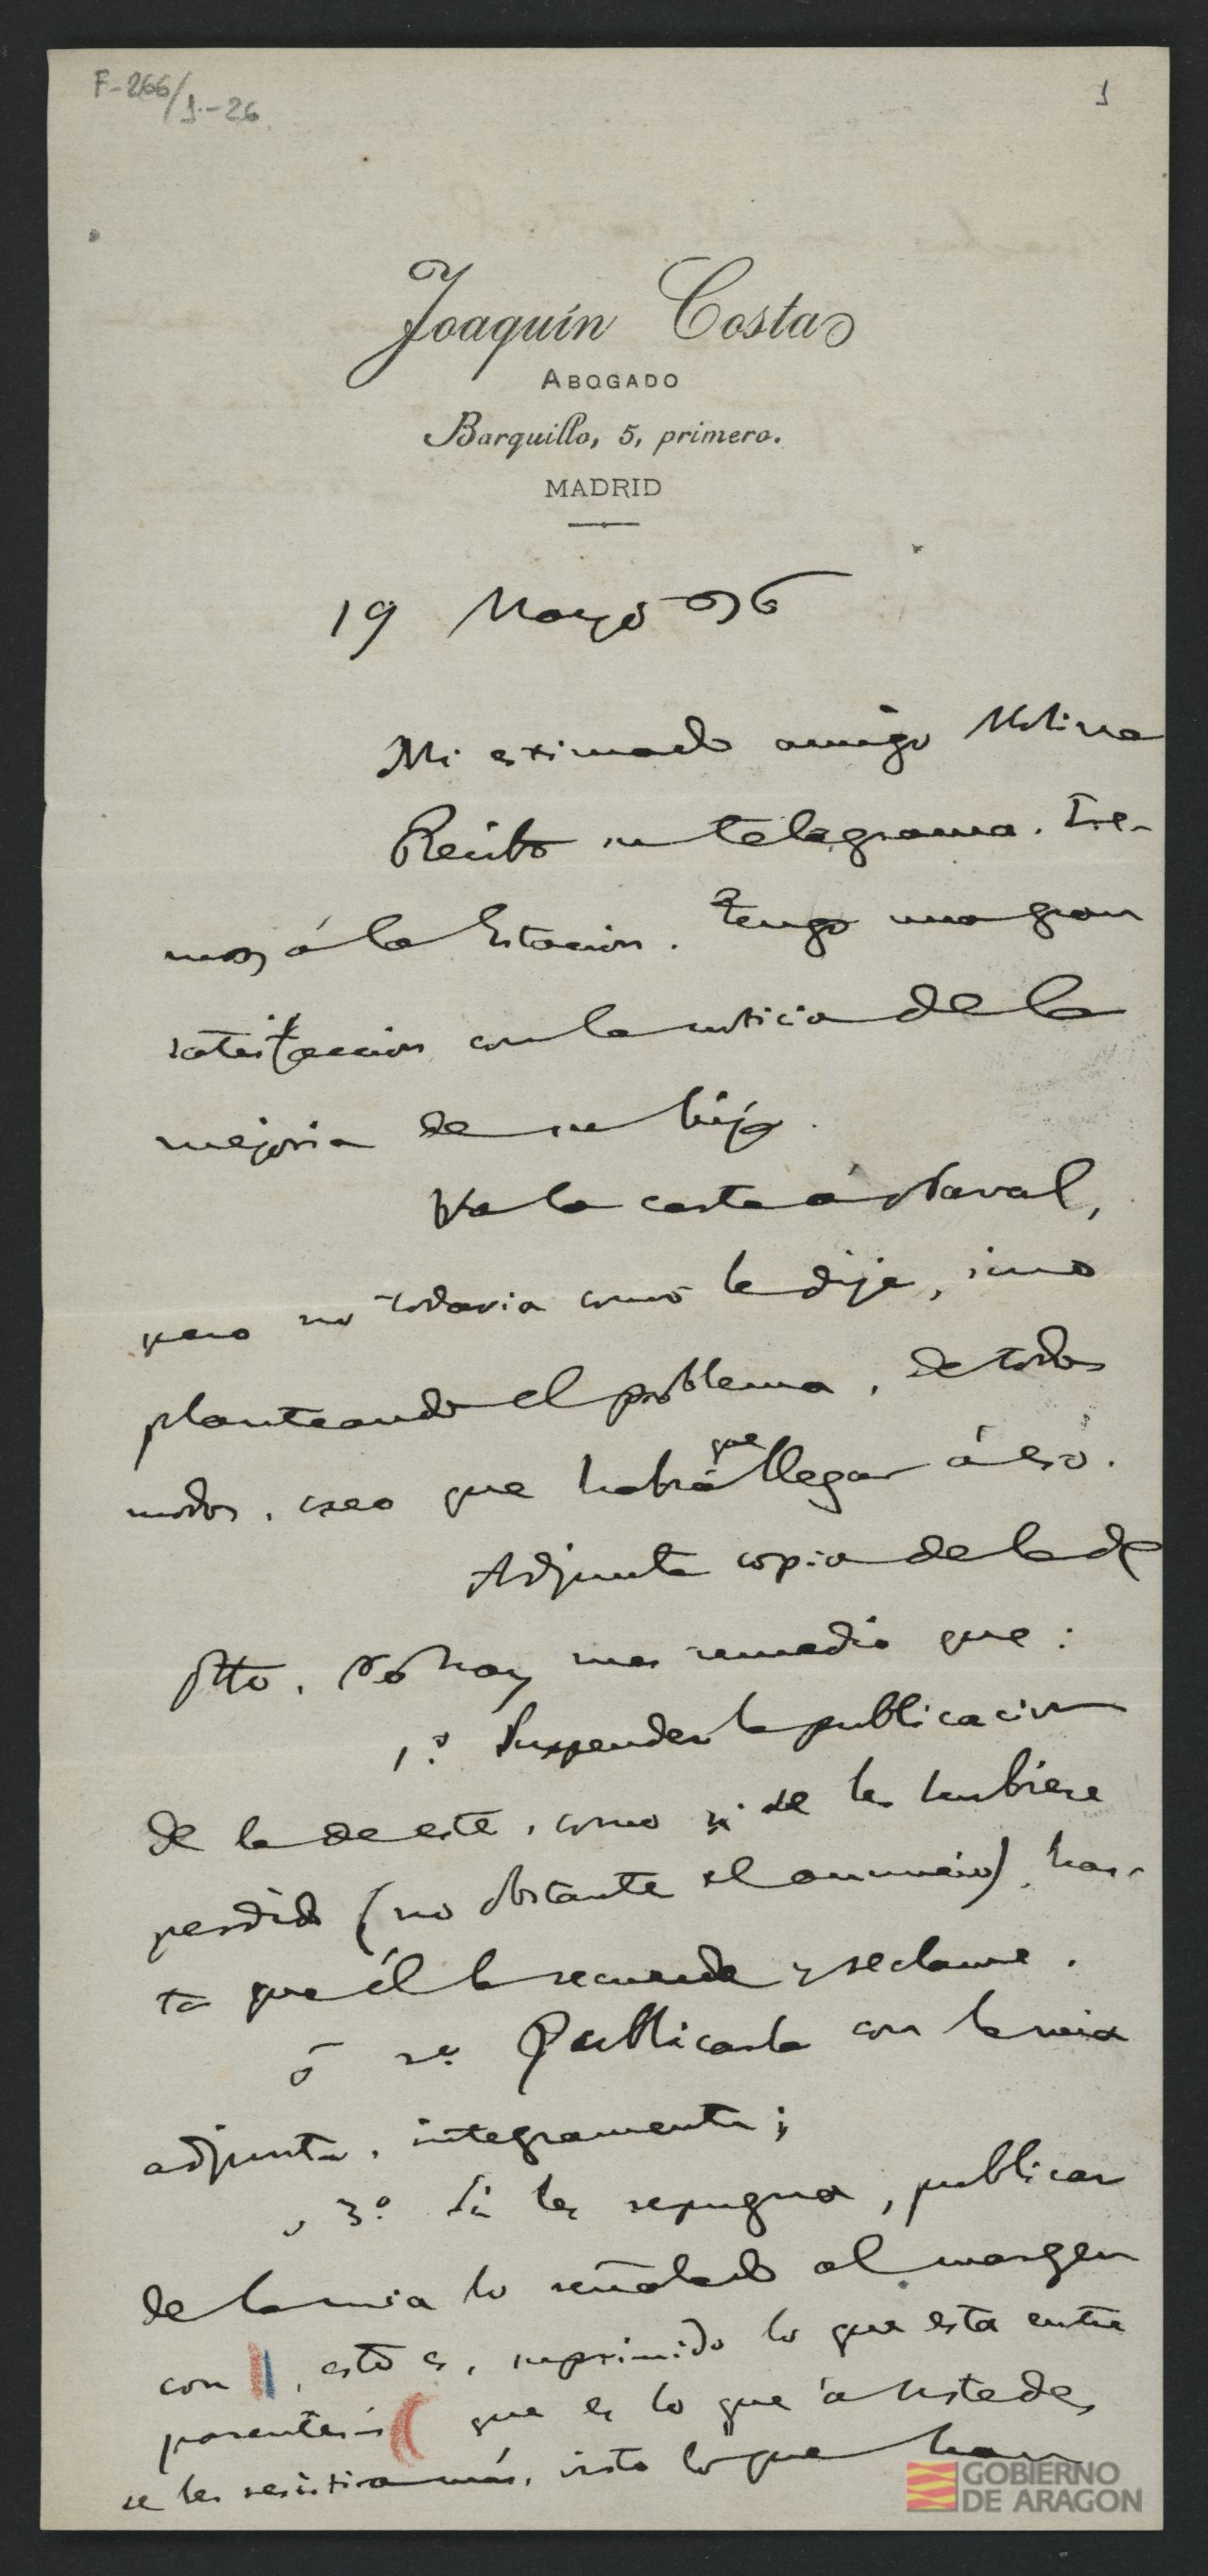 F-266/1.-26
1
Joaquín Costa
ABOGADO
Barquillo, 5, primero.
MADRID
19 Mayo 96
Mi estimado amigo Molina
Recibo su telegrama. Ire-
mos á la Estacion. Tengo una gran
satisfaccion con la noticia de la
mejoria de su hijo.
Va la carta á Naval,
pero no todavia como le dije, sino
planteando el problema. De todos
modos, creo que habrá que llegar á eso.
Adjunta copia de la de
Otto. No hay mas remedio que:
1.º Suspender la publicacion
de la de este, como si se les hubiese
perdido (no obstante el anuncio), has-
ta que él la recuerde y reclame.
ó 2º Publicarla con la mia
adjunta, integramente;
ú 3.º Si les repugna, publicar
de la mia lo señalado al margen
con ||, esto es, suprimido lo que está entre
parentesis ( que es lo que á ustedes
se les resistirá más, visto lo que han
GOBIERNO
DE ARAGON